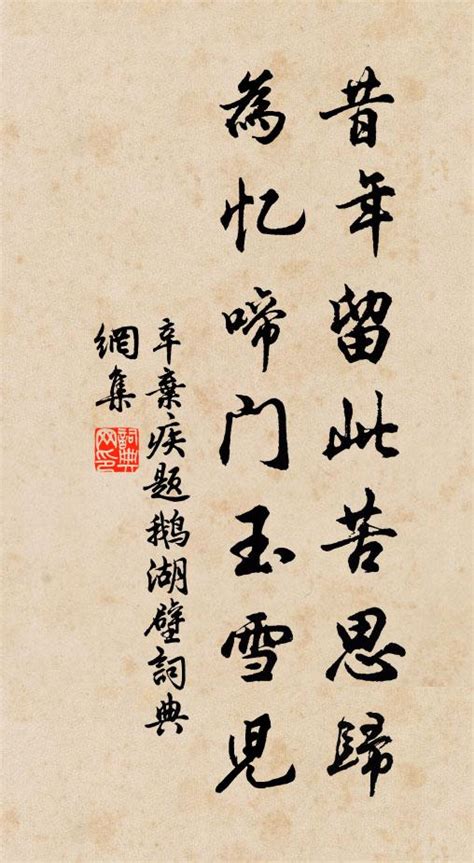 昔年留此苦思歸
為忆啼门玉雪兒
辛棄疾题鵝湖壁詞典
網集
詞典
网印